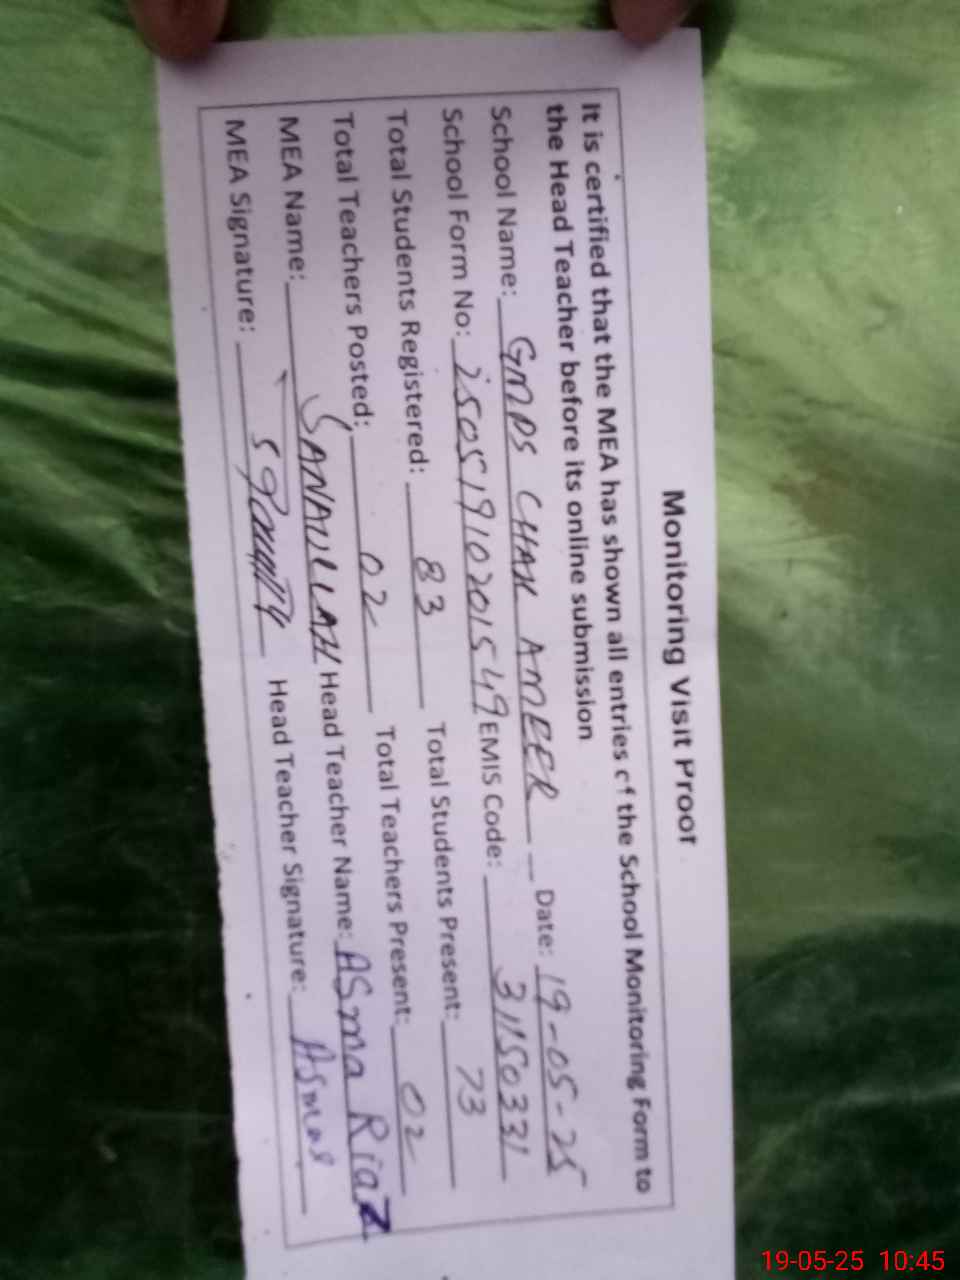 Monitoring Visit Proof
It is certified that the MEA has shown all entries of the School Monitoring Form to
the Head Teacher before its online submission
School Name: GMPS CHAK AMEER Date: 19-05-25
School Form No: 25051910201549 EMIS Code: 31150331
Total Students Registered: 83 Total Students Present: 73
Total Teachers Posted: 02 Total Teachers Present: 02
MEA Name: SANAULLAH Head Teacher Name: ASma Riaz
MEA Signature: Head Teacher Signature: Asma
19-05-25 10:45